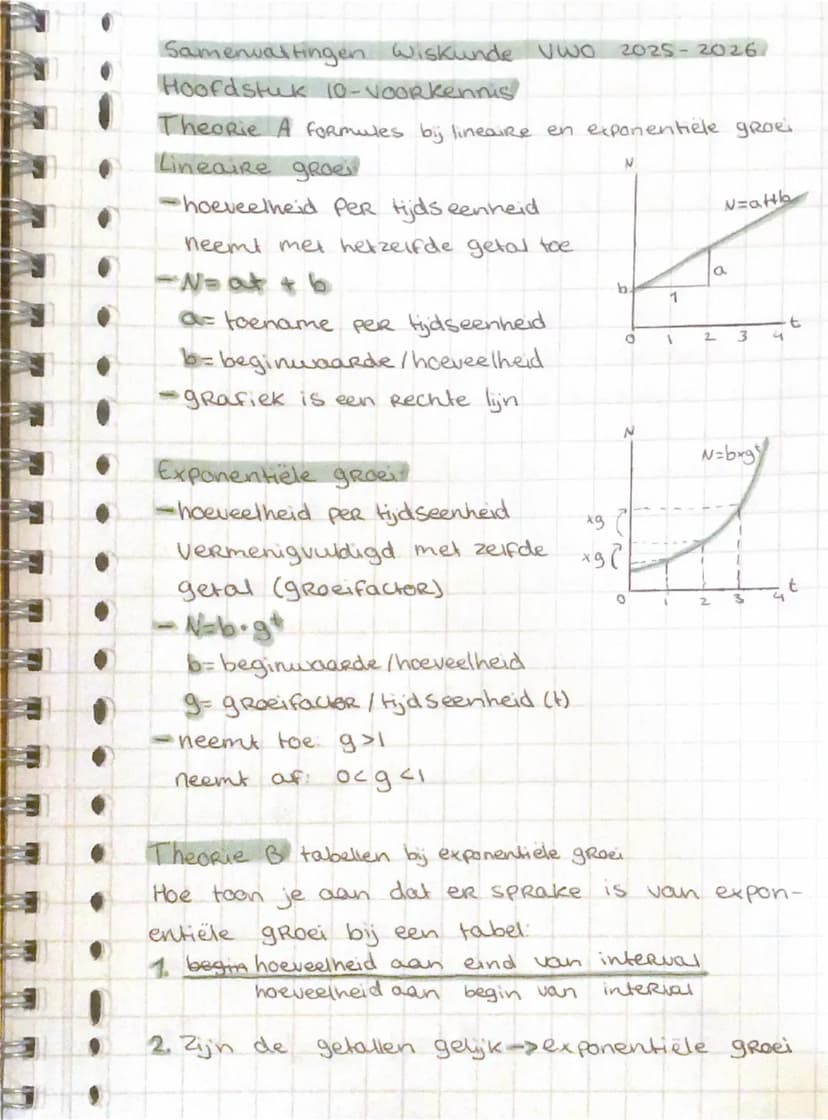 Samenvattingen Wiskunde VWO 2025-2026
Hoofdstuk 10-Voorkennis
Theorie A formules bij lineaire en exponentiële groei
Lineaire groei
-hoeveelheid per tijdseenheid
neemt met hetzelfde getal toe
-N= at + b
a= toename per tijdseenheid
b= beginwaarde/hoeveelheid
-grafiek is een rechte lijn
N
N=at+b
a
b
1
0 1 2 3 4 t
Exponentiële groei
-hoeveelheid per tijdseenheid
vermenigvuldigd met zelfde
getal (groeifactor)
- N=b·gᵗ
b= beginwaarde/hoeveelheid
g= groeifactor/tijdseenheid (t)
-neemt toe: g>1
neemt af: 0<g<1
N
N=b×gᵗ
×g
×g
0 1 2 3 4 t
Theorie B tabellen bij exponentiële groei
Hoe toon je aan dat er sprake is van expon-
entiële groei bij een tabel:
1. begin hoeveelheid aan eind van interval
hoeveelheid aan begin van interval
2. Zijn de getallen gelijk->exponentiële groei